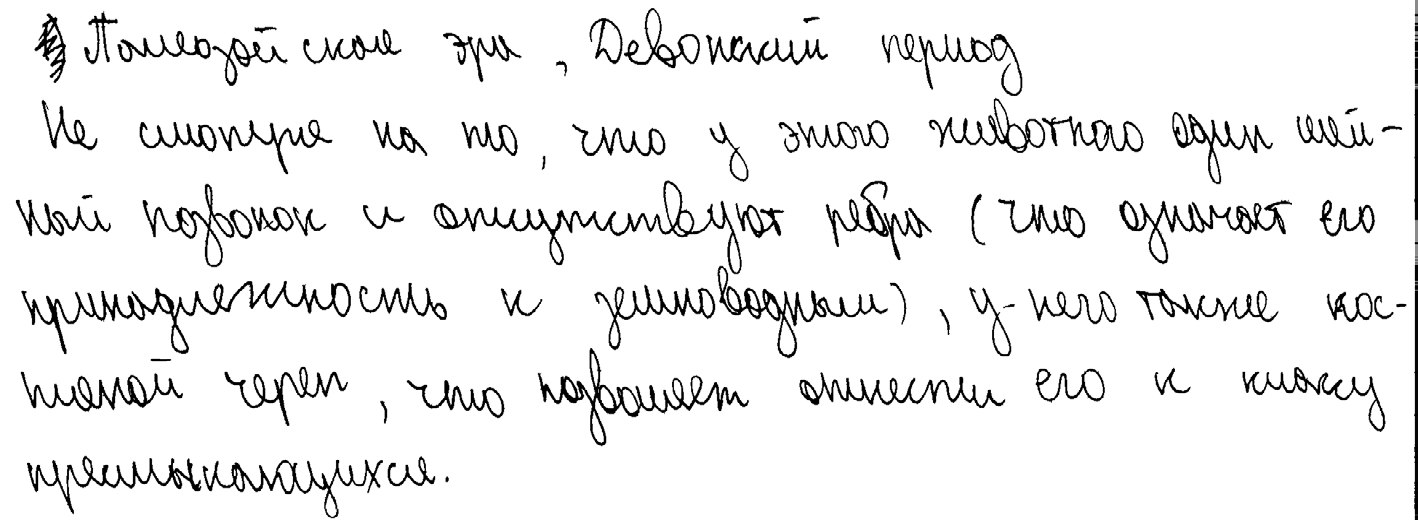 Палеозойская эра, Девонский период
Не смотря на то, что у этого животного один шей-
ный позвонок и отсутствуют рёбра (что означает его
принадлежность к земноводным), у него также кос-
тяной череп, что позволяет отнести его к классу
пресмыкающихся.